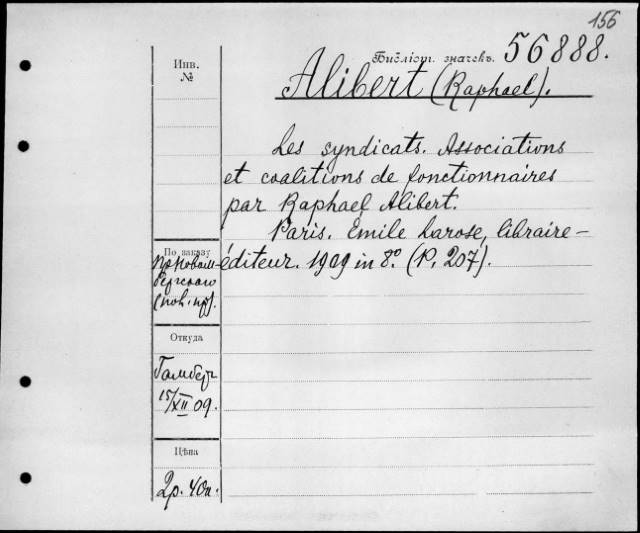 156
Библіот. значекъ. 56888.
Инв.
№
Alibert (Raphael).
Les syndicats. Associations
et coalitions de fonctionnaires
par Raphael Alibert.
Paris. Emile Larose, libraire-
éditeur. 1909 in 8° (P. 207).
По заказу
Откуда
15/XII 09.
Цѣна
2р. 40к.